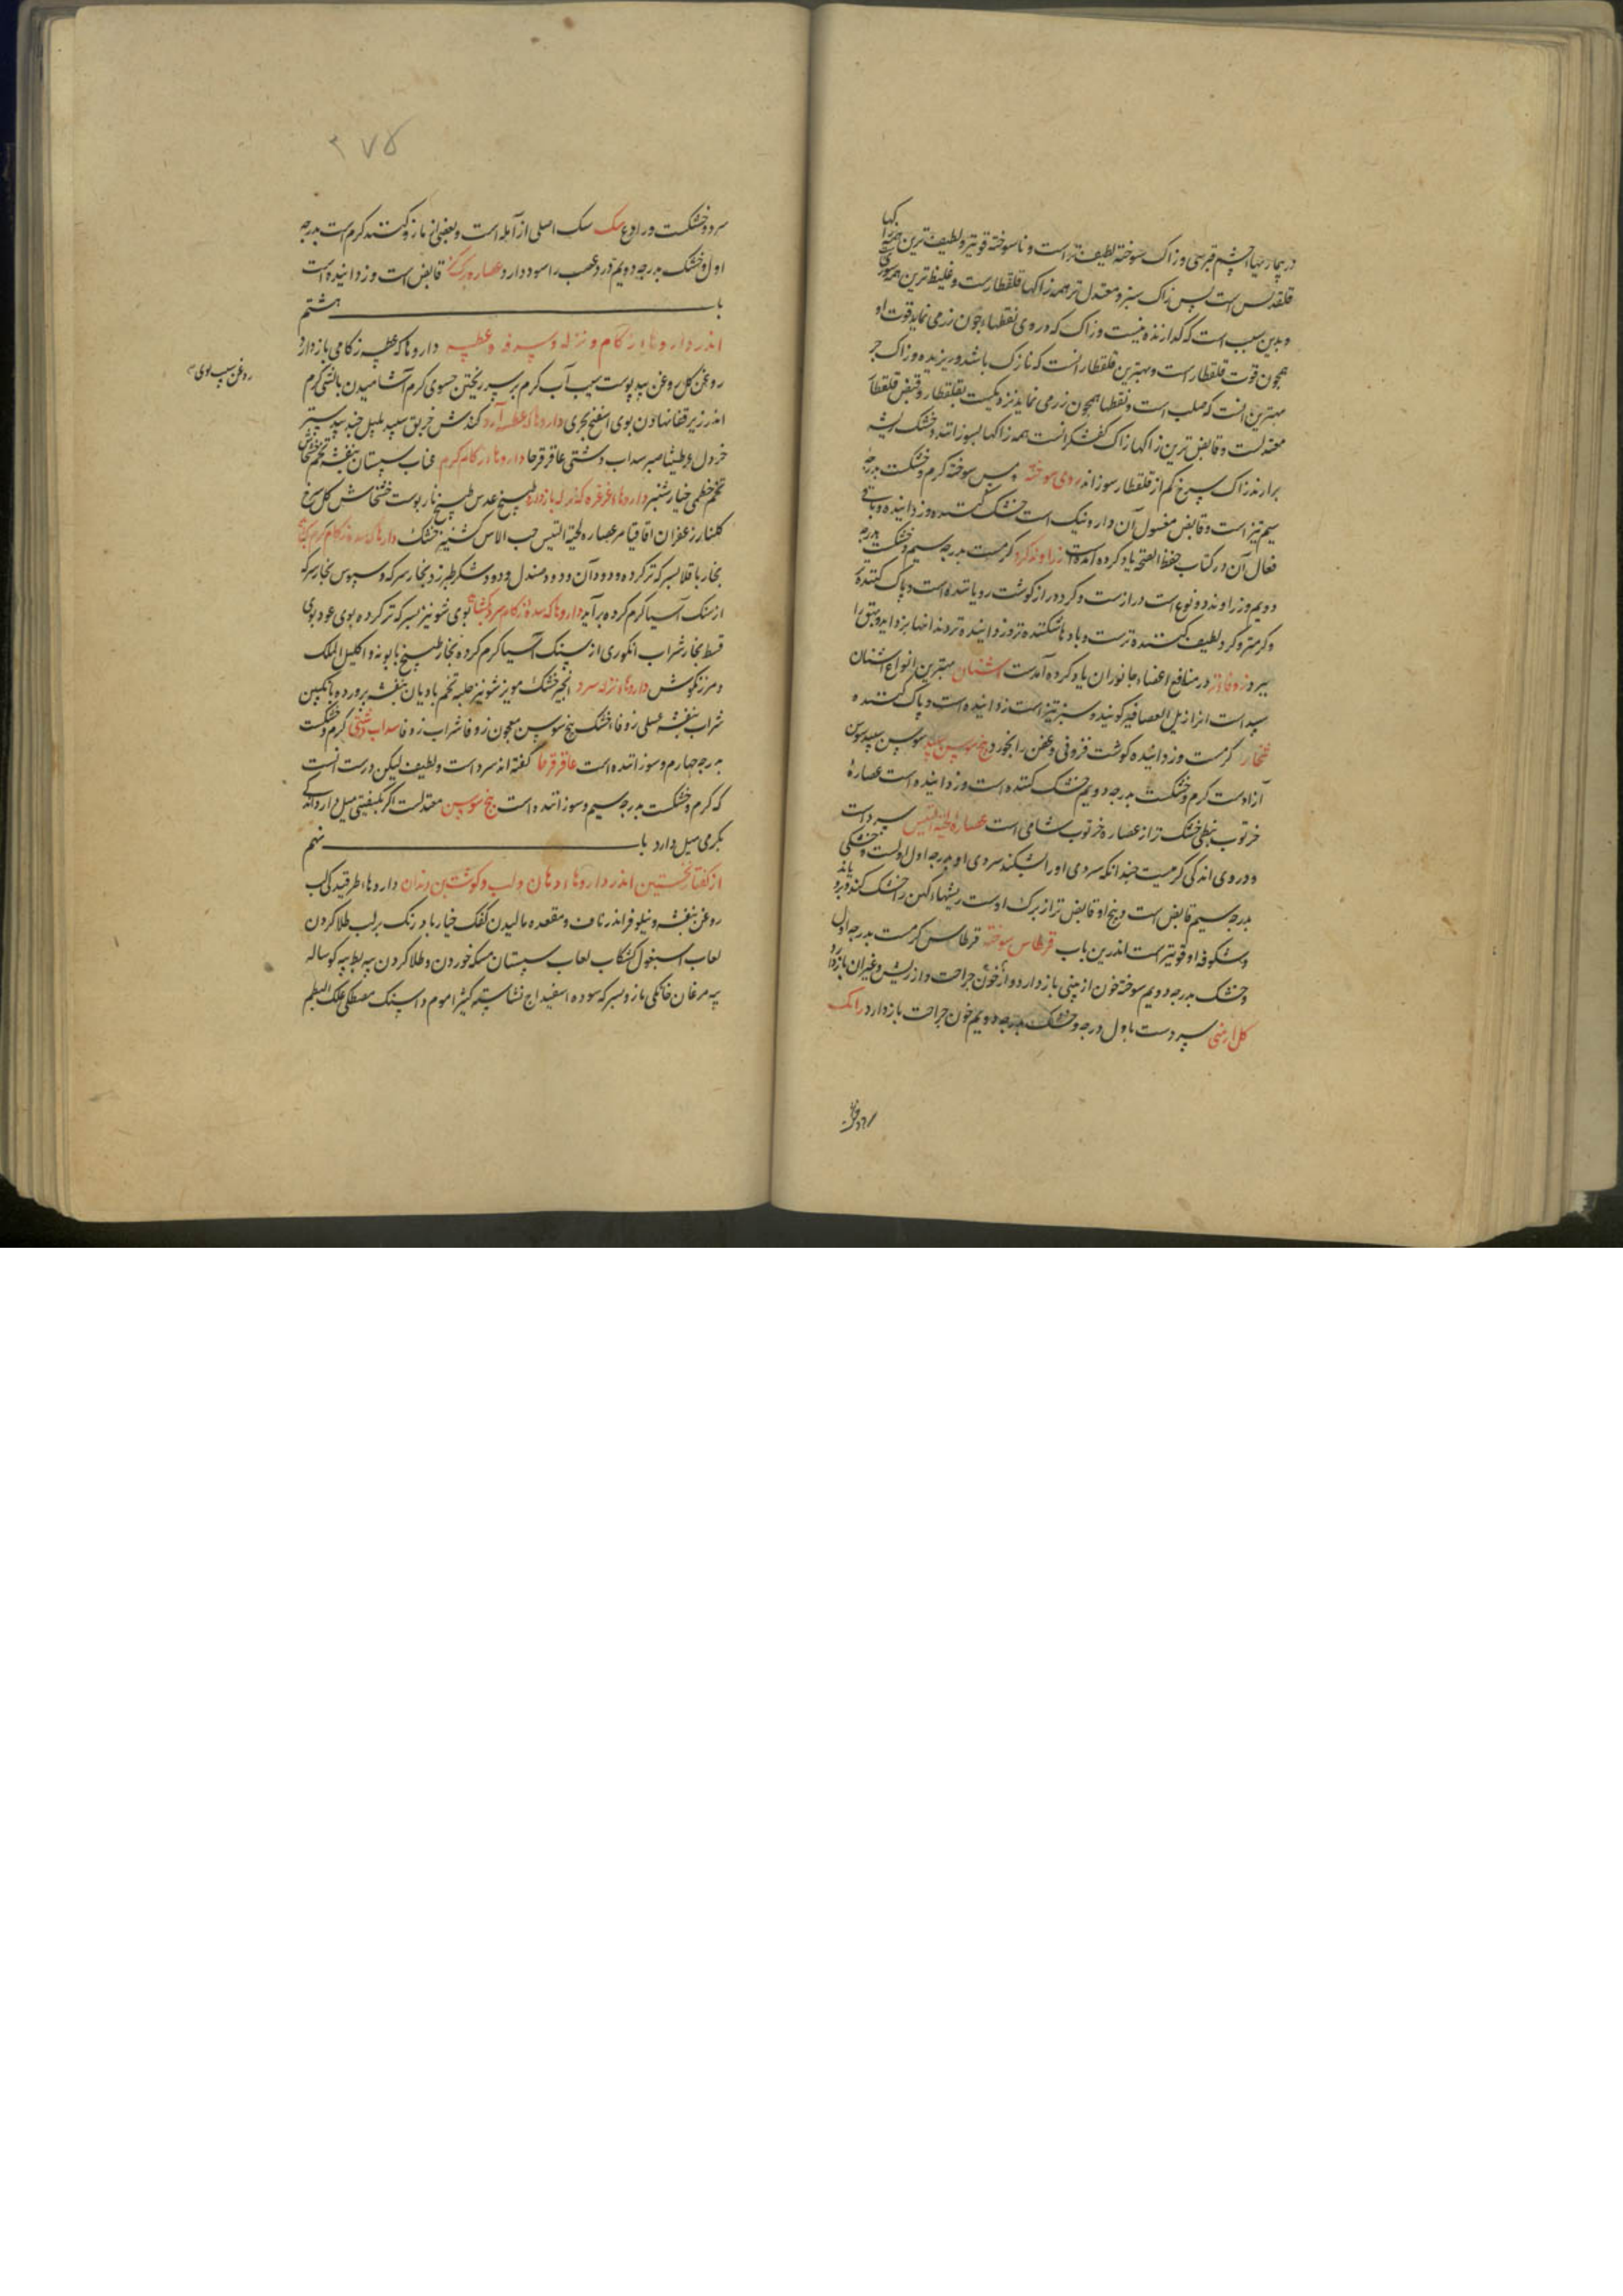 در بیماریهاء چشم قبرسی و زاک سوخته لطیف‌تر است و ناسوخته قویتر و لطیف‌ترین همه زاکها
قلقدیس است پس زاک سبز و معتدل‌تر همه زاکها قلقطارست و غلیظ‌ترین همه سوری
و بدین سبب است که گدازنده نیست و زاک که در وی نقطهاء چون زر می نماید قوت او
همچون قوت قلقطار است و بهترین قلقطار آنست که نازک باشد و ریزیده و زاک
بهترین آنست که صلب است و نقطها همچون زر می نماید نزدیکست بقلقطار و قبض قلقطار
معتدلست و قابض‌ترین زاکها زاک کفشگرانست همه زاکها بسوزانند و خشک ریشه
برارند زاک سرخ کم از قلقطار سوزاند روی سوخته مس سوخته گرم و خشکست بدرجه
سیم تیز است و قابض مغسول آن دارو نیک است خشک کننده و زداینده و باقی
فعال آن در کتاب حفظ الصحة یاد کرده آمده است زراوند گرد گرمست بدرجه سیم و خشکست بدرجه
دویم و زراوند دو نوع است درازست و گرد دراز گوشت رویاننده است و پاک کننده
و گرمتر و گرد لطیف کننده‌تر ست و بادها شکننده‌تر و زداینده‌تر دندانها بزداید و بهق را
ببرد زوفاء تر در منافع اعضاء جانوران یاد کرده آمدست اشنان بهترین انواع اشنان
سپید است انرا زبل العصافیر گویند و سبز تیز است زداینده است و پاک کننده
شخار گرمست و زداینده گوشت فزونی و عفن را بخورد بیخ سوسن سپید سوسن سپید سوسن
آزادست گرم و خشکست بدرجه دویم خشک کننده است و زداینده است عصاره
خرنوب نبطی خشک‌تر از عصاره خرنوب شامی است عصارة لحیة التیس سرد است
و در وی اندکی گرمیست چندانکه سردی او را بشکند سردی او بدرجه اول اولست و خشکی
بدرجه سیم قابض است و بیخ او قابض‌تر از برگ اوست ریشهاء کهن را خشک کند و برویاند
و شکوفه او قویتر است اندرین باب قرطاس سوخته قرطاس گرمست بدرجه اول
و خشک بدرجه دویم سوخته خون از بینی باز دارد و از خون جراحت و از ریش و غیر آن باز دارد
گل ارمنی سردست باول درجه و خشک بدرجه دویم خون جراحت باز دارد رامک
۲۷۵
سرد و خشکست و رادع سک سک اصلی از آمله است و بعضی از مازو کنند گرم است بدرجه
اول و خشک بدرجه دویم درد عصب را سود دارد عصاره برگ قابض است و زداینده است
باب هشتم
اندر داروهاء زکام و نزله و سرفه و عطسه داروها که عطسه زکامی باز دارد
روغن گل روغن بید پوست سیب آب گرم بر سر ریختن حسوی گرم آشامیدن بالشی گرم
اندر زیر قفا نهادن بوی اسفنج بحری داروها که عطسه آرد کندش خربق سپید پلپل جندبیدستر
خردل عرطنیثا صبر سداب دشتی عاقرقرحا داروهاء زکام گرم عناب سپستان بنفشه تخم خشخاش
تخم خطمی خیارشنبر داروهاء غرغره که نزله باز دارد طبیخ عدس طبیخ نار پوست خشخاش گل سرخ
گلنار زعفران اقاقیا مر عصاره لحیة التیس حب الاس کشنیز خشک داروها که سده زکام گرم بگشاید
بخار باقلا بسرکه تر کرده و دود آن و دود صندل و دود شکر طبرزد بخار سرکه و سبوس بخار سرکه
از سنگ آسیا گرم کرده برآید داروها که سده زکام سرد بگشاید بوی شونیز بسرکه تر کرده بوی عود بوی
قسط بخار شراب انگوری از سنگ آسیا گرم کرده بخار طبیخ بابونه و اکلیل الملک
و مرزنگوش داروهاء نزله سرد انجیر خشک مویز شونیز حلبه تخم بادیان بنفشه پرورده بانگبین
شراب بنفشه عسلی زوفاء خشک بیخ سوسن معجون زوفا شراب زوفا سداب دشتی گرم و خشکست
بدرجه چهارم و سوزاننده است عاقرقرحا گفته اند سرد است و لطیف لیکن درست آنست
که گرم و خشکست بدرجه سیم و سوزاننده است بیخ سوسن معتدلست اگر بکیفیتی میل دارد اندکی
بگرمی میل دارد باب نهم
از گفتار نخستین اندر داروهاء دهان و لب و گوشت بن دندان داروهاء طرقیدگی لب
روغن بنفشه و نیلوفر اندر ناف و مقعده مالیدن کفک خیار بادرنگ بر لب طلا کردن
لعاب اسبغول کشکاب لعاب سپستان مسکه خوردن و طلا کردن پیه بط پیه گوساله
پیه مرغان خانگی مازو بسرکه سوده اسفیداج نشاسته کثیرا موم داسنک مصطکی علک البطم
روغن سیب بوی